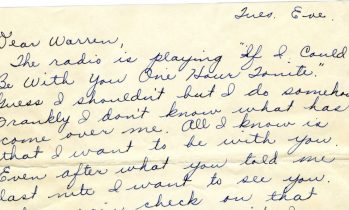 Tues. Eve.
Dear Warren,
The radio is playing "If I Could
Be With You One Hour Tonite."
Guess I shouldn't but I do somehow
Frankly I don't know what has
come over me. All I know is
that I want to be with you.
Even after what you told me
last nite I want to see you.
check on that